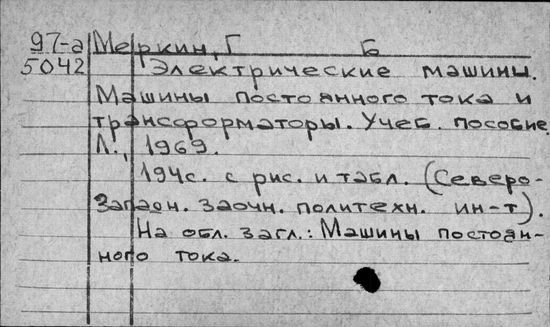 97-а Меркин, Г Б
5042 Электрические машины.
Машины постоянного тока и
трансформаторы. Учеб. пособие.
Л., 1969.
194с. с рис. и табл. (Северо-
Западн. заочн. политехн. ин-т).
На обл. загл.: Машины постоян-
ного тока.